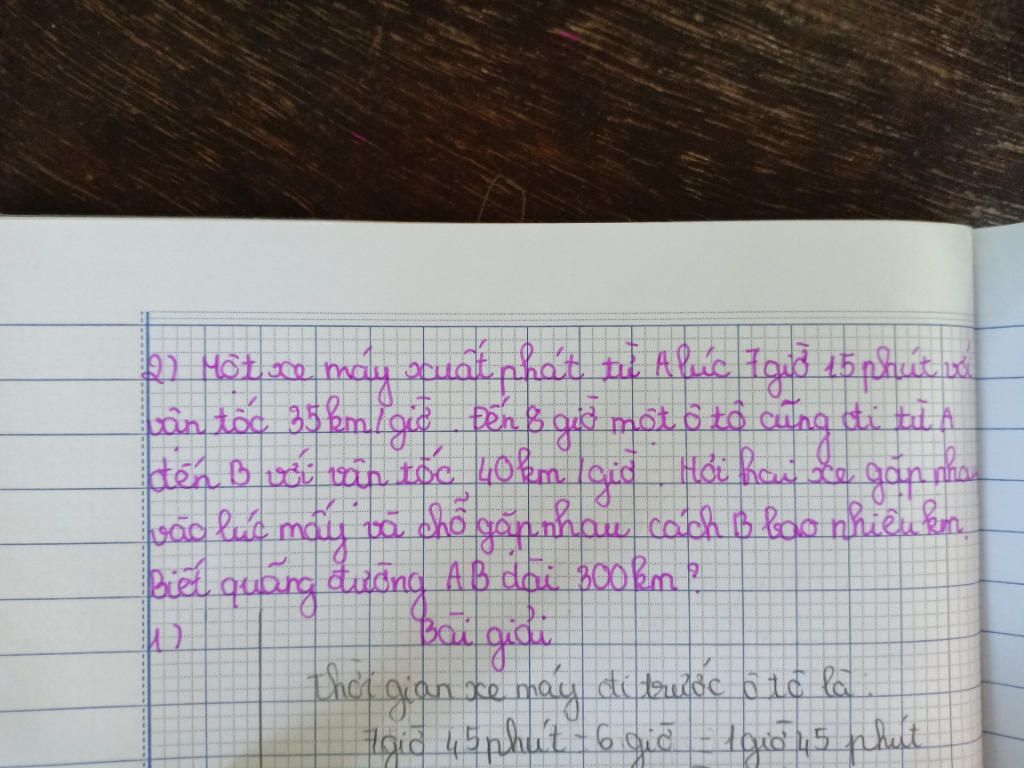 2) Một xe máy xuất phát từ A lúc 7giờ 15phút với
vận tốc 35km/giờ. Đến 8 giờ một ô tô cũng đi từ A
đến B với vận tốc 40km/giờ. Hỏi hai xe gặp nhau
vào lúc mấy và chỗ gặp nhau cách B bao nhiêu km.
Biết quãng đường AB dài 300km?
1) Bài giải
Thời gian xe máy đi trước ô tô là:
7giờ 45phút - 6 giờ = 1giờ 45 phút